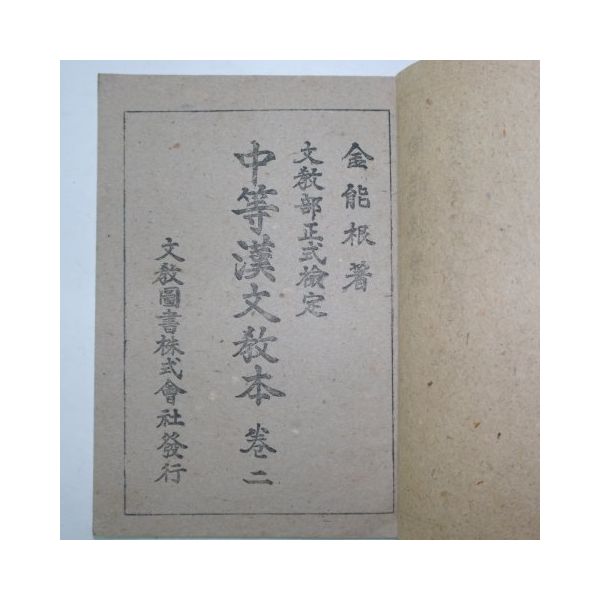 金能根著
文教部正式檢定
中等漢文教本 卷二
文教圖書株式會社發行